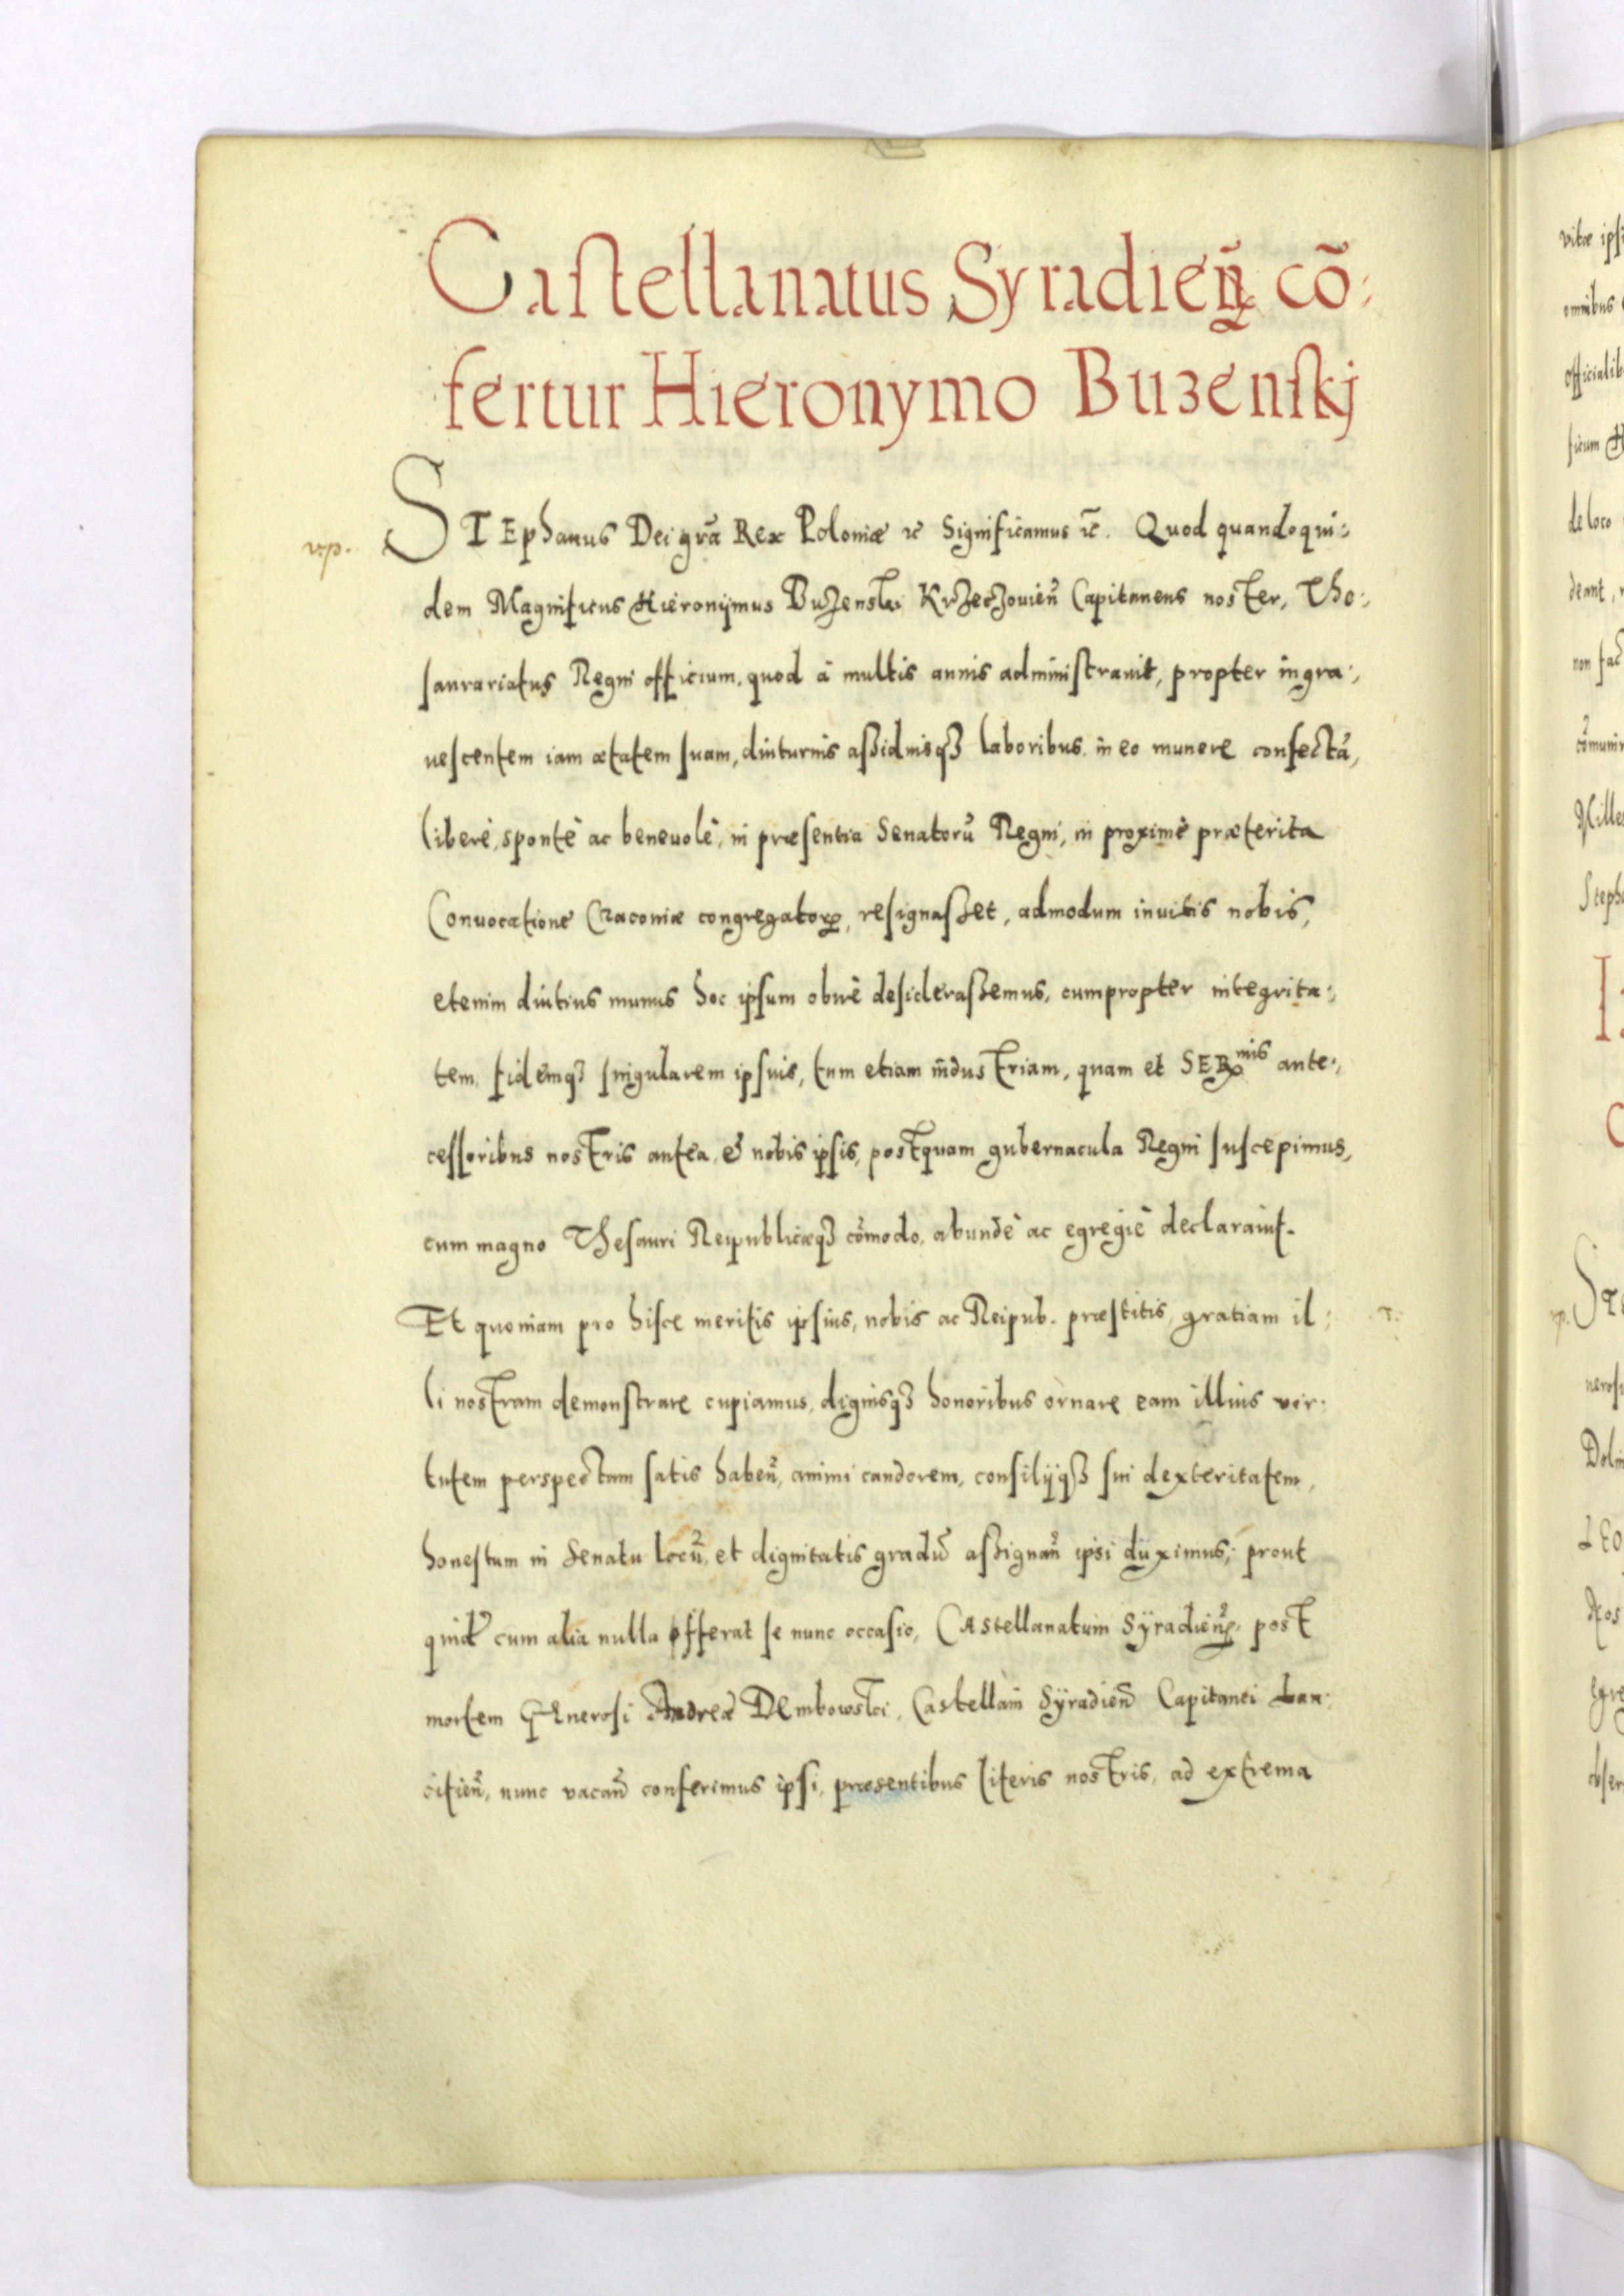 Castellanatus Syradieñ cō:
fertur Hieronymo Buzenskj
STEphanus Dei grã Rex Poloniæ &c Significamus &c. Quod quandoqui:
dem Magnificus Hieronymus Buzenski Krzeczouień Capitaneus noster, The:
saurariatus Regni officium, quod à multis annis administrauit, propter ingra:
uescentem iam ætatem suam, diuturnis assiduisq3 laboribus in eo munere confectã,
liberè, spontè ac beneuolè, in præsentia Senatorũ Regni, in proximè præterita
Conuocatione Cracouiæ congregatoꝝ, resignasset, admodum inuitis nobis,
etenim diutius munus hoc ipsum obirè desiderassemus, cum propter integrita:
tem, fidemq3 singularem ipsius, tum etiam industriam, quam et SERmis ante:
cessoribus nostris antea, & nobis ipsis, postquam gubernacula Regni suscepimus,
cum magno Thesauri Reipublicæq3 cõmodo, abundè ac egregiè declarauit.
Et quoniam pro hisce meritis ipsius, nobis ac Reipub. præstitis, gratiam il:
li nostram demonstrare cupiamus, dignisq3 honoribus ornare eam illius vir:
tutem perspectam satis habeñ, animi candorem, consilijq3 sui dexteritatem,
honestum in Senatu locũ, et dignitatis gradũ assignañ ipsi duximus, prout
quidẽ cum alia nulla offerat se nunc occasio, CAstellanatum Syradieñ, post
mortem GEnerosi Andreæ DEmbowski, Castellani Syradieñ Capitanei Lan:
citień, nunc vacañ conferimus ipsi, præsentibus literis nostris, ad extrema